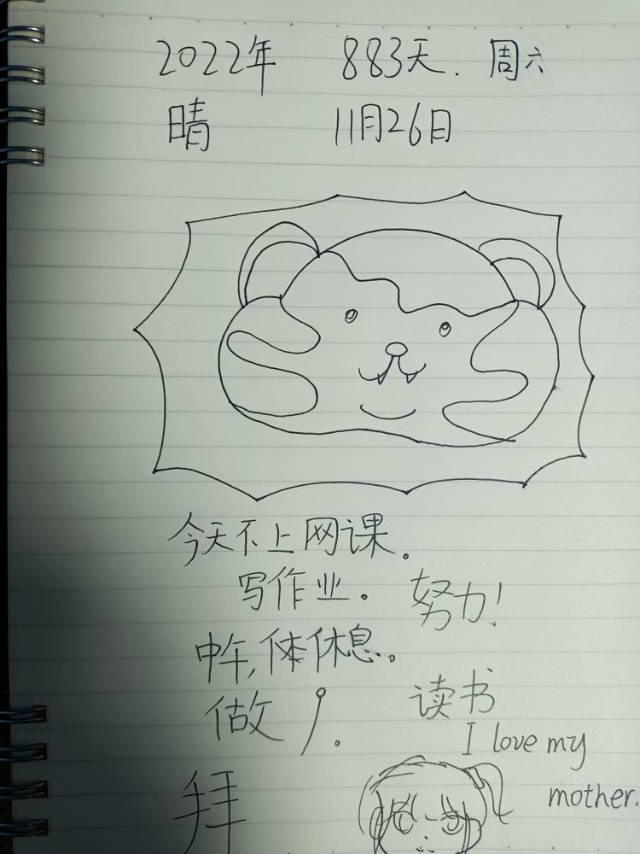 2022年 883天. 周六
晴 11月26日
今天不上网课。
写作业。 努力!
中午,体休息。
做
读书
I love my
mother.
拜